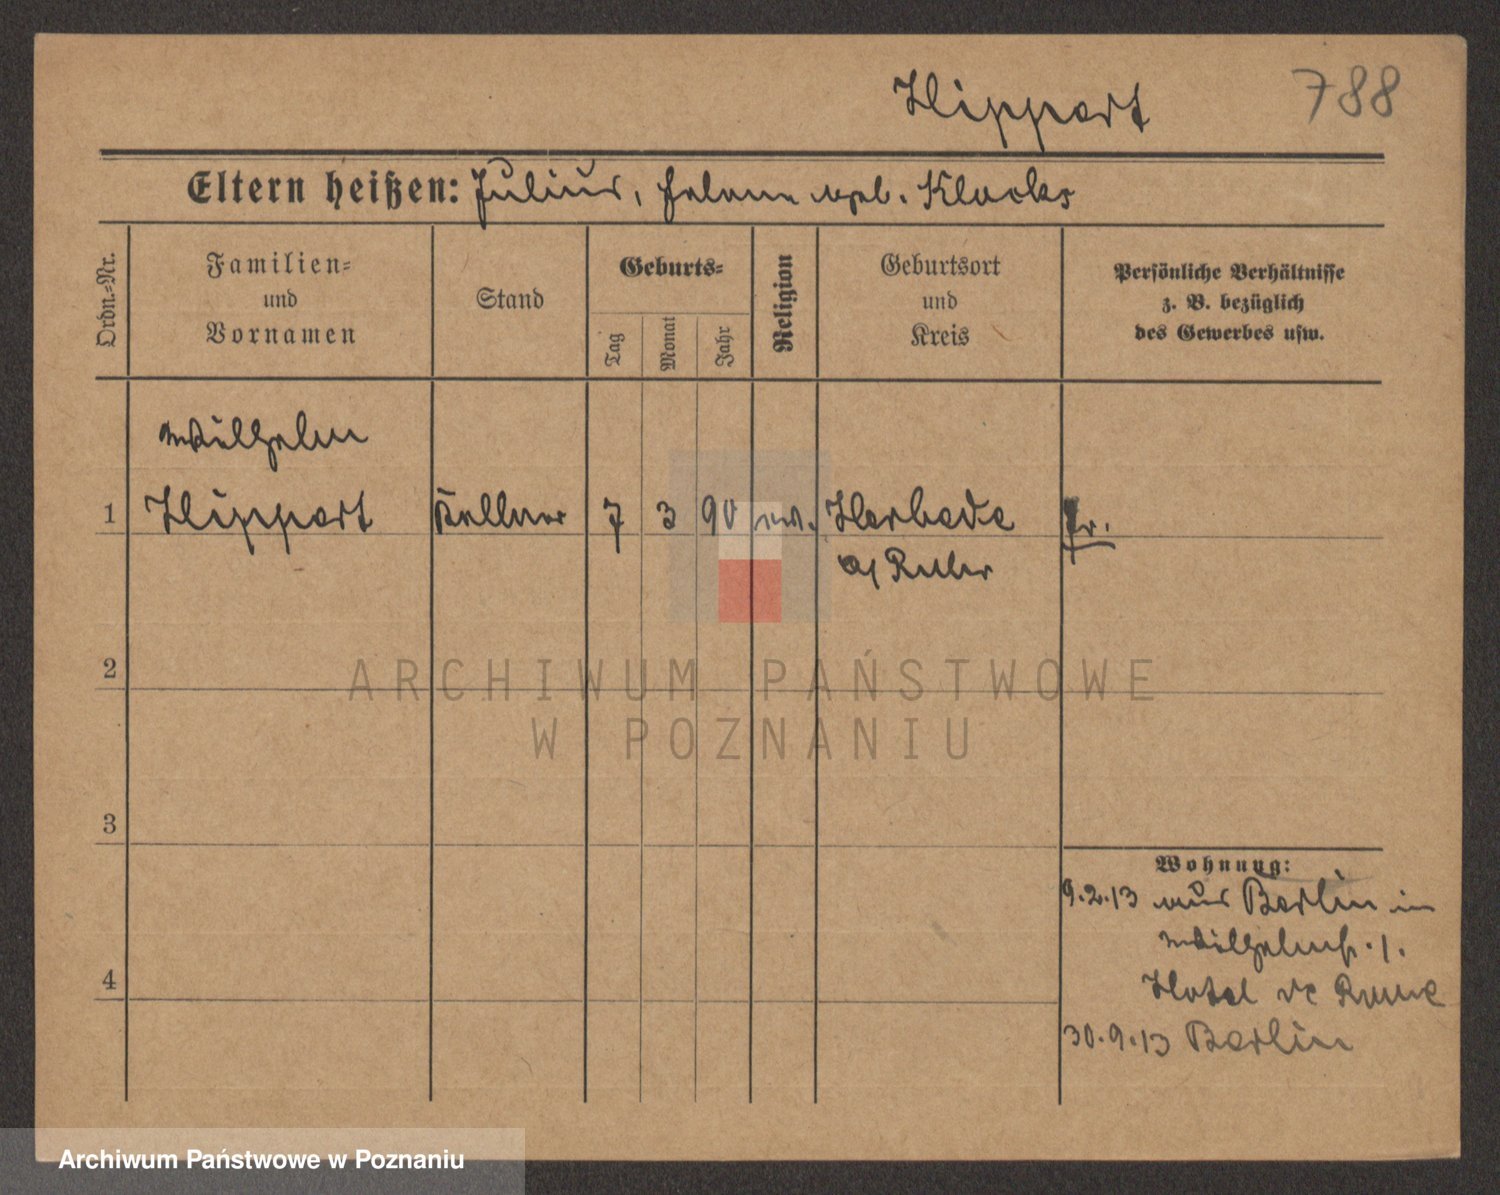 Hippert
788
Eltern heißen: Julius, Helene geb. Klocks
Ordn.-Nr.
Familien-
und
Vornamen
Stand
Geburts-
Tag
Monat
Jahr
Religion
Geburtsort
und
Kreis
Persönliche Verhältnisse
z. B. bezüglich
des Gewerbes usw.
Wilhelm
1 Hippert Kellner 7 3 90 ev. Herbede Pr.
a/ Ruhr
2
ARCHIWUM PAŃSTWOWE
W POZNANIU
3
Wohnung:
9.2.13 aus Berlin in
Wilhelmstr. 1.
4
Hotel de Rome
30.9.13 Berlin
Archiwum Państwowe w Poznaniu